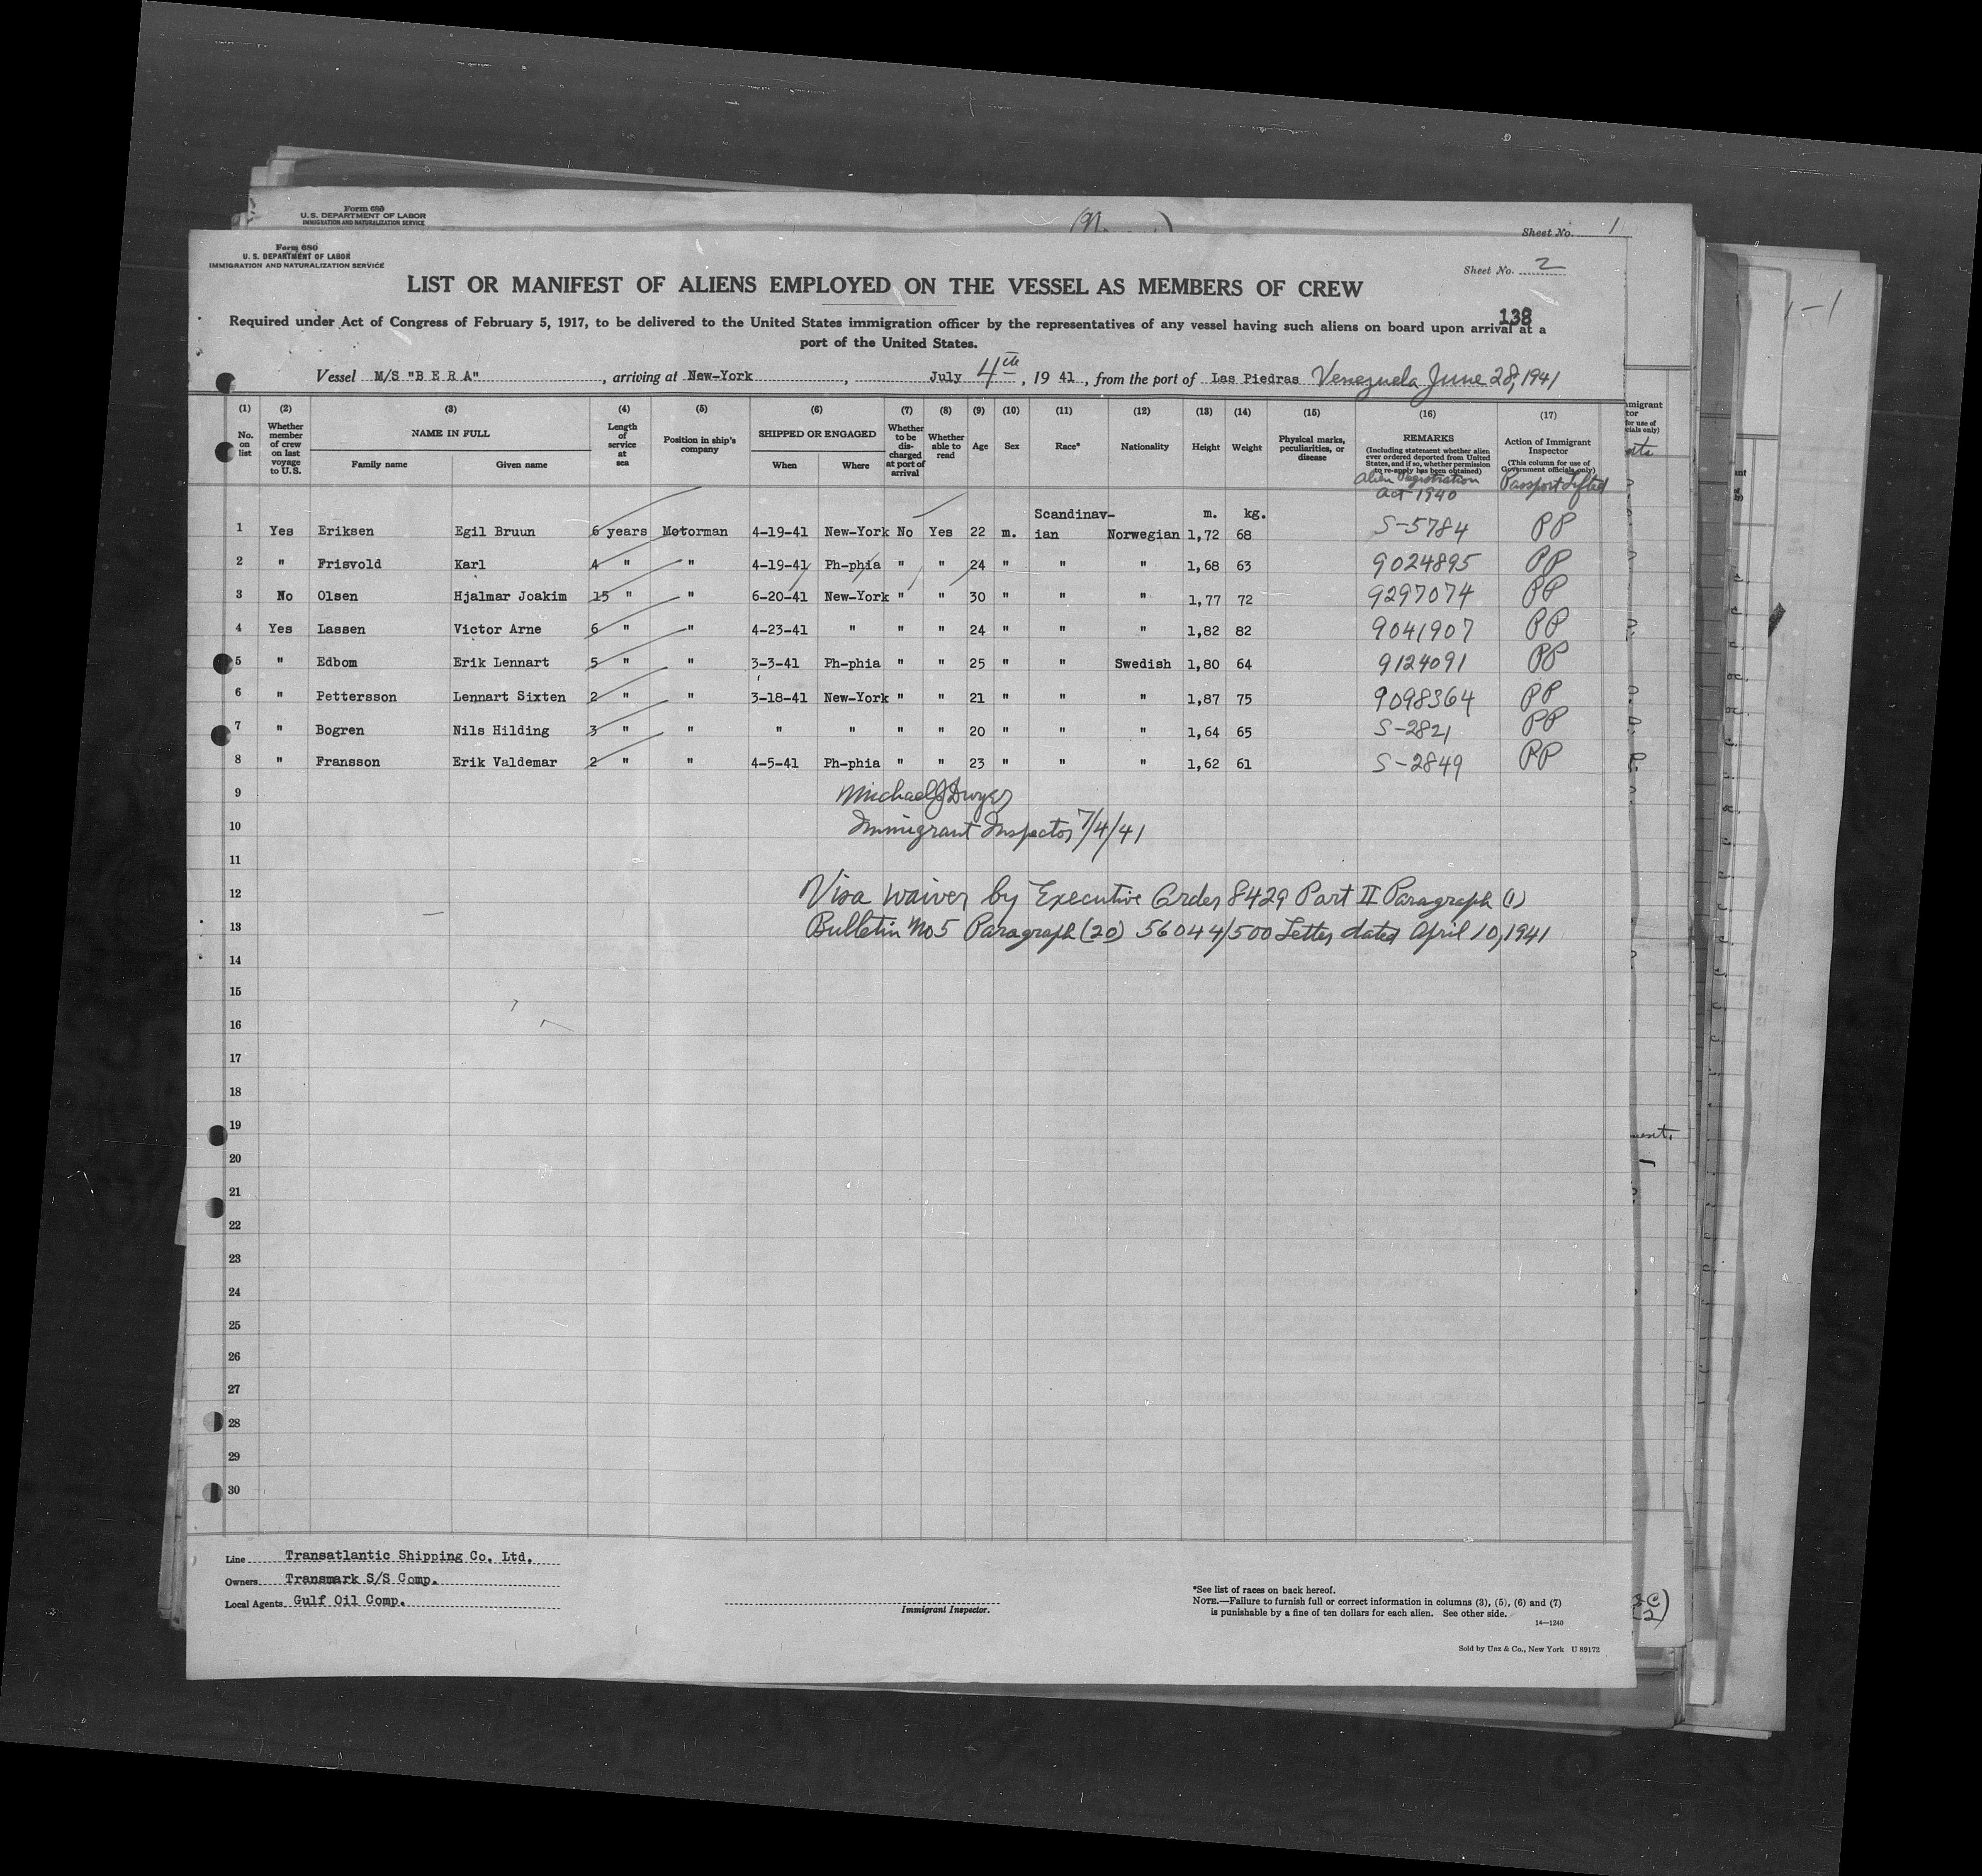 Form 680
U. S. DEPARTMENT OF LABOR
IMMIGRATION AND NATURALIZATION SERVICE
Sheet No. 1
Form 680
U. S. DEPARTMENT OF LABOR
IMMIGRATION AND NATURALIZATION SERVICE
Sheet No. 2
LIST OR MANIFEST OF ALIENS EMPLOYED ON THE VESSEL AS MEMBERS OF CREW
138
Required under Act of Congress of February 5, 1917, to be delivered to the United States immigration officer by the representatives of any vessel having such aliens on board upon arrival at a
port of the United States.
Vessel M/S "B E R A", arriving at New-York, July 4th, 19 41, from the port of Las Piedras Venezuela June 28, 1941
(1) (2) (3) (4) (5) (6) (7) (8) (9) (10) (11) (12) (13) (14) (15) (16) (17)
No. on list
Whether member of crew on last voyage to U.S.
NAME IN FULL
Family name Given name
Length of service at sea
Position in ship's company
SHIPPED OR ENGAGED
When Where
Whether to be discharged at port of arrival
Whether able to read
Age Sex Race* Nationality Height Weight
Physical marks, peculiarities, or disease
REMARKS
(Including statement whether alien ever ordered deported from United States, and if so, whether permission to re-apply has been obtained)
Alien Registration Act 1940
Action of Immigrant Inspector
(This column for use of Government officials only)
Passport Lifted
1 Yes Eriksen Egil Bruun 6 years Motorman 4-19-41 New-York No Yes 22 m. Scandinav-ian Norwegian m. 1,72 kg. 68 S-5784 PP
2 " Frisvold Karl 4 " " 4-19-41 Ph-phia " " 24 " " " 1,68 63 9024895 PP
3 No Olsen Hjalmar Joakim 15 " " 6-20-41 New-York " " 30 " " " 1,77 72 9297074 PP
4 Yes Lassen Victor Arne 6 " " 4-23-41 " " " 24 " " " 1,82 82 9041907 PP
5 " Edbom Erik Lennart 5 " " 3-3-41 Ph-phia " " 25 " " Swedish 1,80 64 9124091 PP
6 " Pettersson Lennart Sixten 2 " " 3-18-41 New-York " " 21 " " " 1,87 75 9098364 PP
7 " Bogren Nils Hilding 3 " " " " " " 20 " " " 1,64 65 S-2821 PP
8 " Fransson Erik Valdemar 2 " " 4-5-41 Ph-phia " " 23 " " " 1,62 61 S-2849 PP
9 Michael J Dwyer
10 Immigrant Inspector 7/4/41
11
12 Visa waiver by Executive Order 8429 Part II Paragraph (1)
13 Bulletin No 5 Paragraph (20) 56044/500 Letter dated April 10, 1941
14
15
16
17
18
19
20
21
22
23
24
25
26
27
28
29
30
Line Transatlantic Shipping Co. Ltd.
Owners Transmark S/S Comp.
Local Agents Gulf Oil Comp.
Immigrant Inspector.
*See list of races on back hereof.
NOTE.—Failure to furnish full or correct information in columns (3), (5), (6) and (7)
is punishable by a fine of ten dollars for each alien. See other side.
14—1240
Sold by Unz & Co., New York U 89172